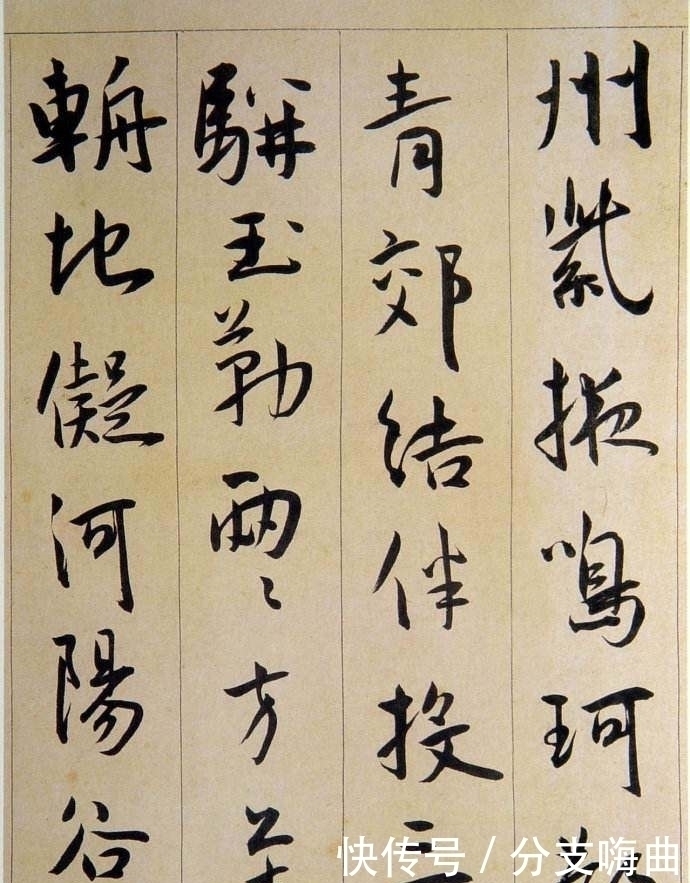 州紫掖鳴珂
青郊結伴投
騈玉勒兩〻方
輈地儗河陽谷
快传号 / 分支嗨曲